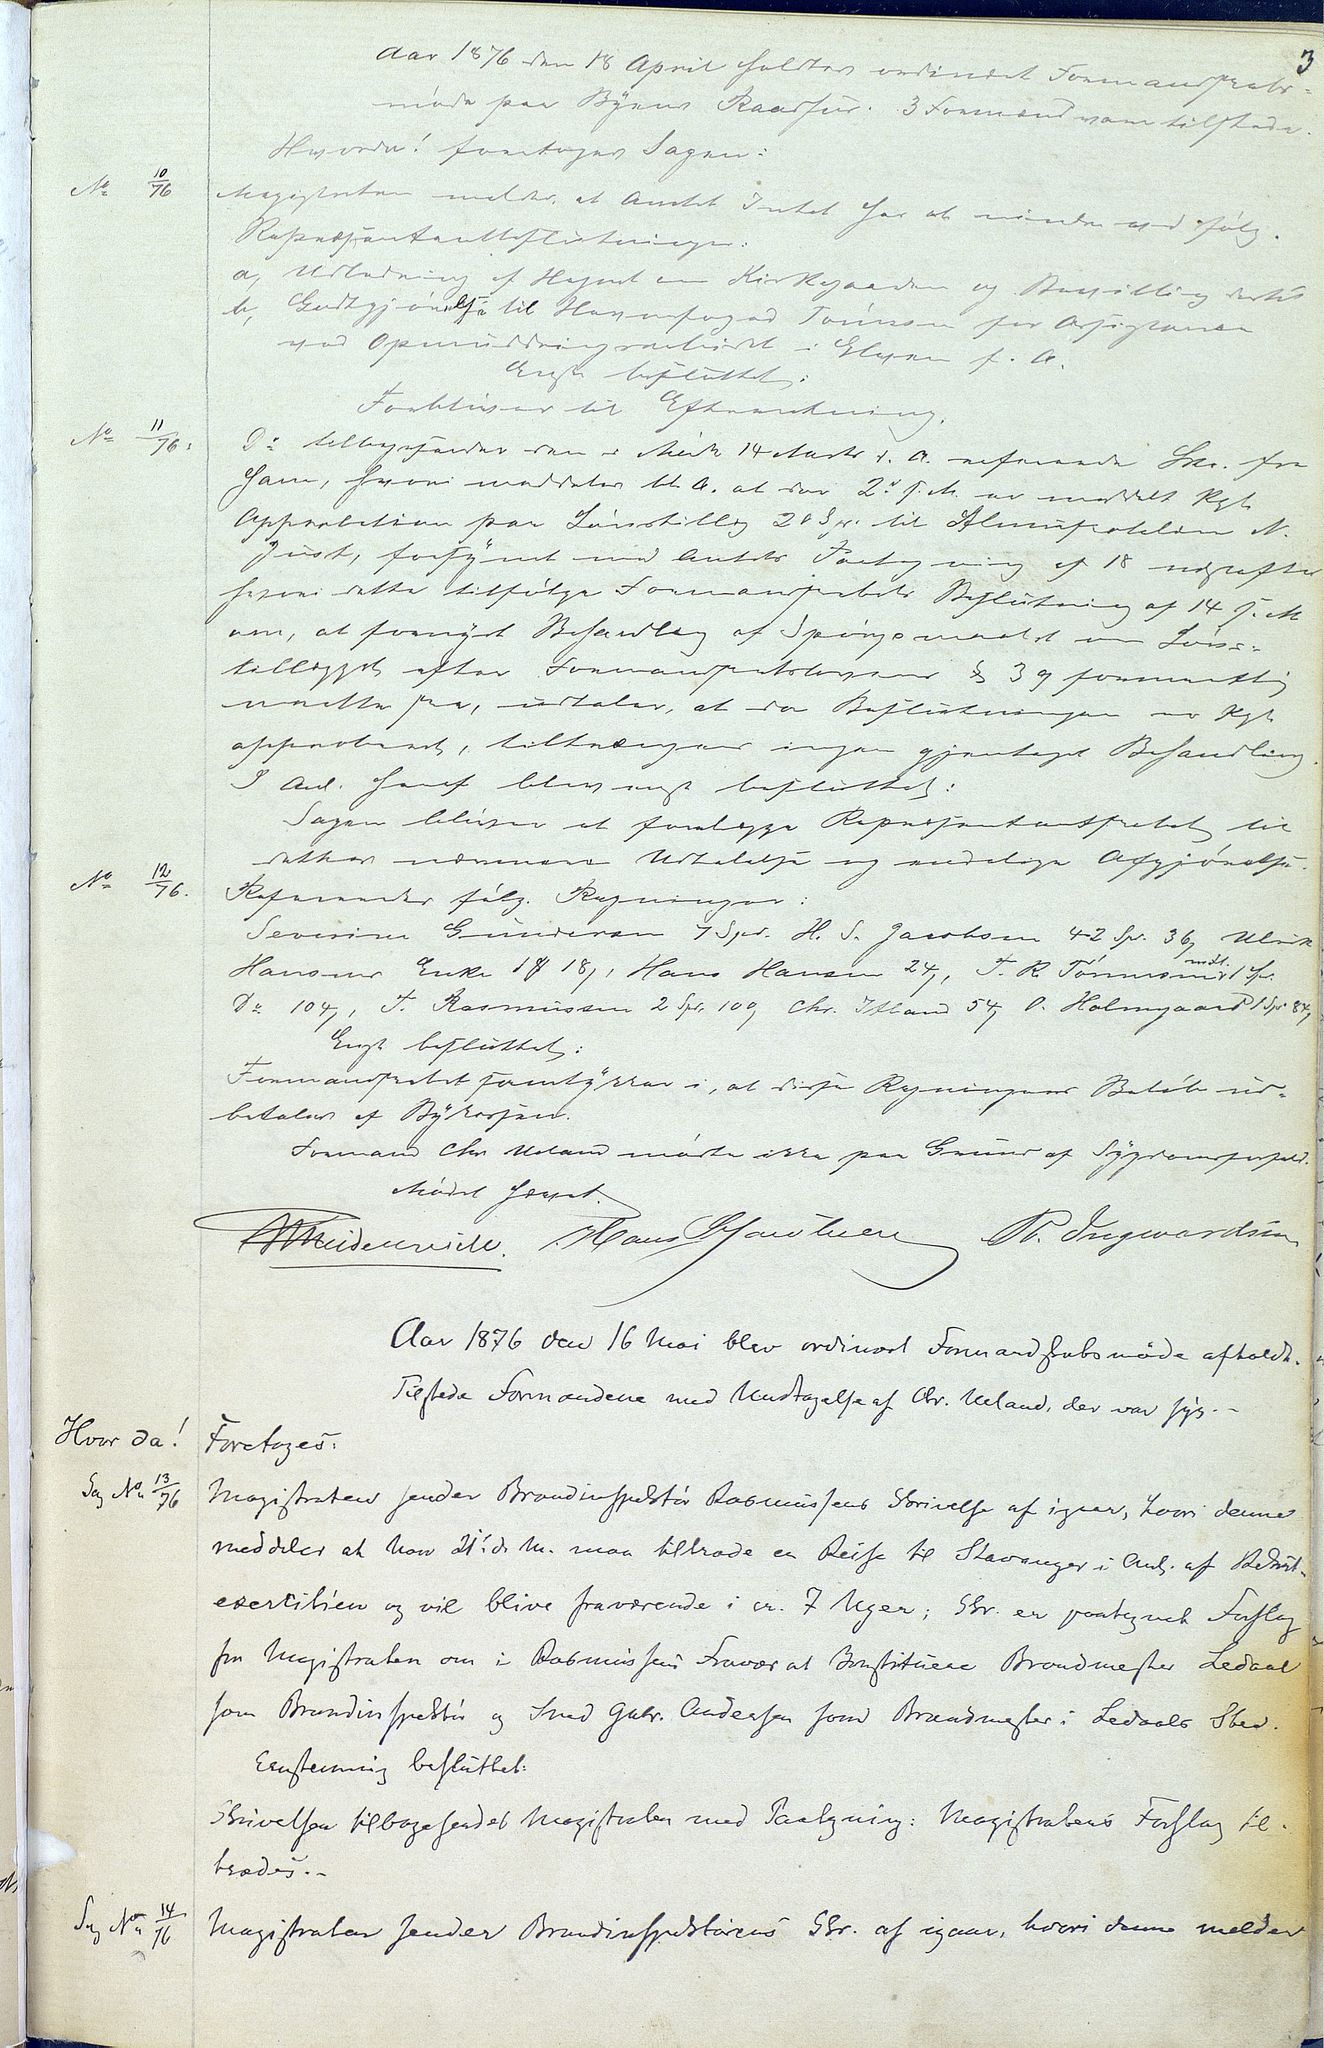 3
Aar 1876 den 18 April holdtes ordinært Formandskabs-
møde paa Byens Raadhus. 3 Formænd vare tilstede.
Hvorda! foretoges Sagen:
No 10/76 Magistraten melder, at Amtet Intet har at erindre ved følg.
Repræsentantbeslutninger:
a, Udledning af Vand en Kirkegaarden og Bevilling dertil
b, Godtgjørelse til Havnefoged Tønnesen for
ved Opmuddringsarbeidet i Elven f. A.
Enst. besluttet:
Foreløbigen til Efterretning.
No 11/76: Do tilbagesender den i Møde 14 Marts d. A. refererede Skr. fra
ham, hvori meddeles bl. A. at der 2. f. M. er meddelt Kgl.
Approbation paa Lønstillæg 20 Spd. til Almueskolelærer N.
Just, forsynet med Amtets Paategning af 18 næstefter
hvori dette tilfølge Formandskabets Beslutning af 14 f. M
om, at fornyet Behandling af Spørgsmaalet om Løns-
tillægget efter Formandskabslovens § 39 formentlig
maatte ske, udtaler, at da Beslutningen er Kgl.
approberet, tiltrænges ingen gjentaget Behandling.
I Anl. heraf blev enst. besluttet:
Sagen bliver at forelægge Repræsentantskabet til
dettes nærmere Udtalelse og endelige Afgjørelse.
No 12/76. Refereredes følg. Regninger:
Severine Gundersen 7 Spd. H. S. Jacobsen 42 Sp. 36, Ulrik
Hansens Enke 18, Hans Hansen 24, T. R. Tønnesen mdl. 1 Sp.
Do 104, T. Rasmussen 2 Spd. 109 Chr. Iland 54, O. Holmgaard 1 Spd 84,
Enst. besluttet:
Formandskabet samtykker i, at disse Regningers Beløb ud-
betales af Bykassen.
Formand Chr Ueland mødte ikke paa Grund af Sygdomsforfald.
Mødet hævet.
Hans R. Ingwardsen
Aar 1876 den 16 Mai blev ordinært Formandskabsmøde afholdt.
Tilstede Formændene med Undtagelse af Chr. Ueland, der var syg. -
Hvor da! Foretoges:
Sag No 13/76 Magistraten sender Brandinspektør Rasmussens Skrivelse af igaar, hvori denne
meddeler at han 21. d. M. maa tiltræde en Reise til Stavanger i Anl. af Rekrut-
exercitien og vil blive fraværende i ca. 7 Uger; Skr. er paategnet Forslag
fra Magistraten om i Rasmussens Fravær at konstituere Brandmester Ledaal
som Brandinspektør og Smed Gabr. Andersen som Brandmester i Ledaals Sted.
Eenstemmig besluttet:
Skrivelsen tilbagesendes Magistraten med Paategning: Magistratens Forslag til-
trædes. -
Sag No 14/76 Magistraten sender Brandinspektørens Skr. af igaar, hvori denne melder